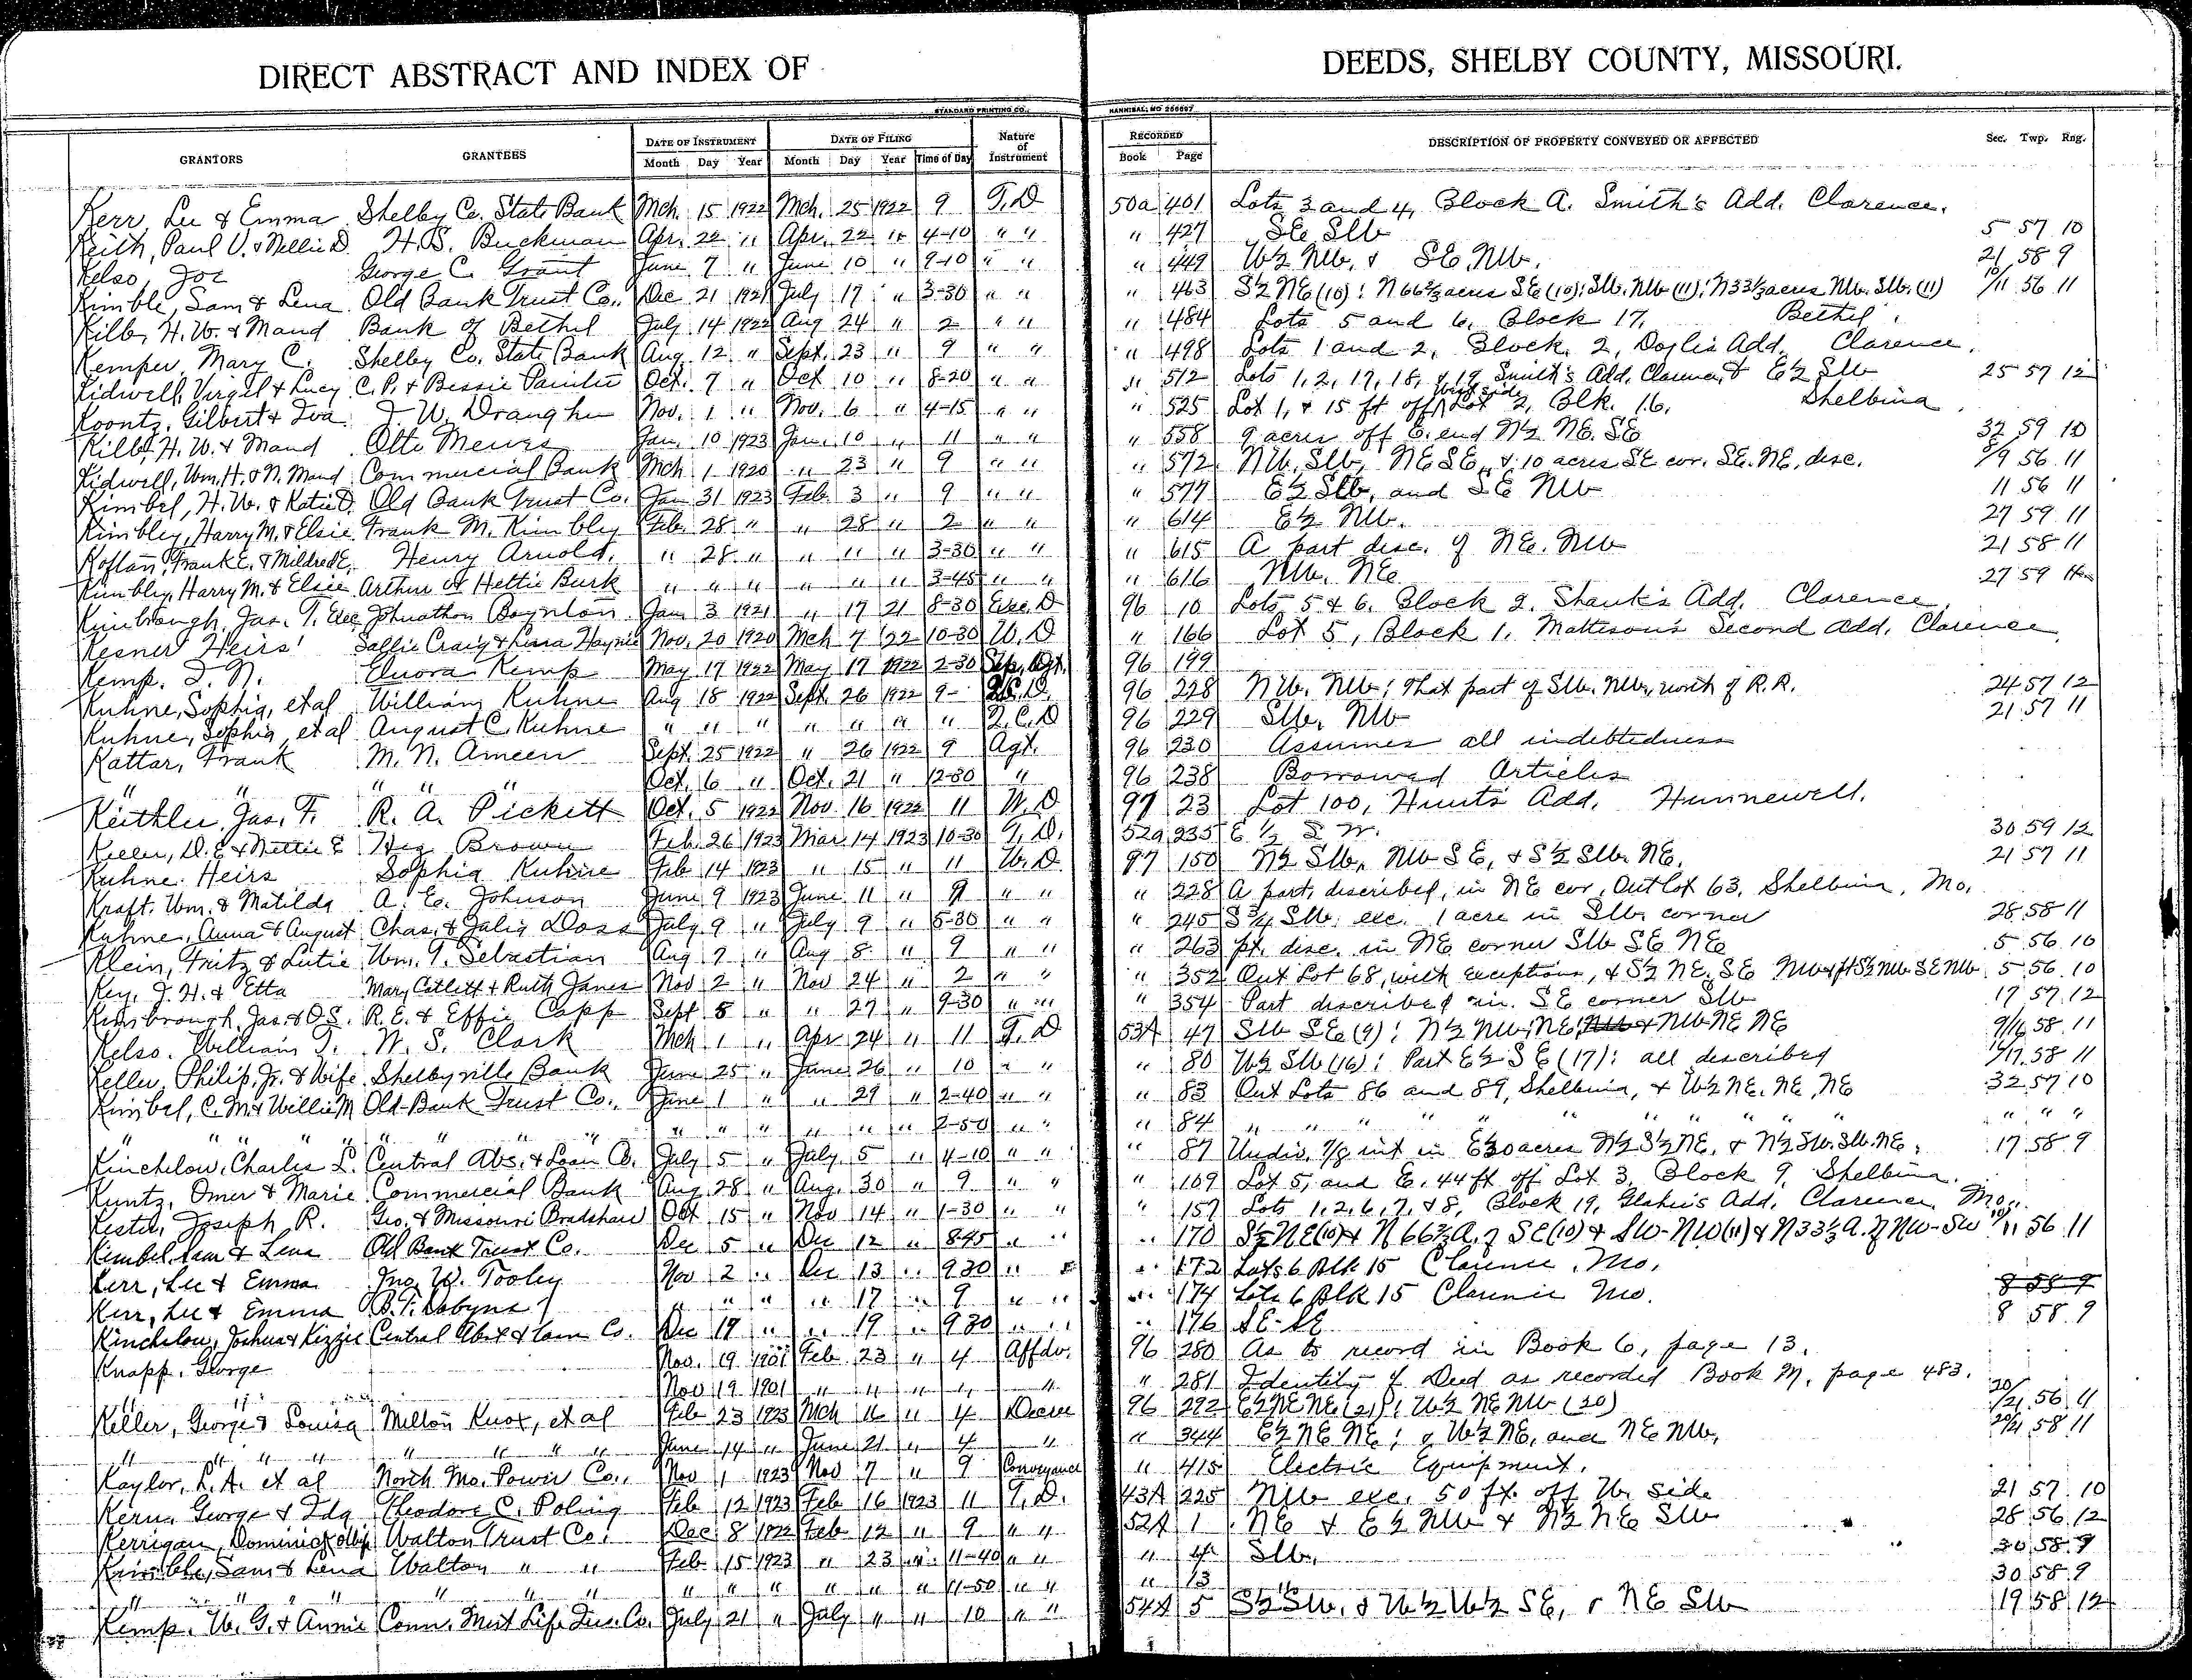 DIRECT ABSTRACT AND INDEX OF DEEDS, SHELBY COUNTY, MISSOURI.
STANDARD PRINTING CO., HANNIBAL, MO 256697
GRANTORS GRANTEES DATE OF INSTRUMENT DATE OF FILING Nature of Instrument RECORDED DESCRIPTION OF PROPERTY CONVEYED OR AFFECTED Sec. Twp. Rng.
Month Day Year Month Day Year Time of Day Book Page
Kerr Lee & Emma Shelby Co. State Bank Mch. 15 1922 Mch. 25 1922 9 T.D 50a 401 Lots 3 and 4, Block A. Smith's Add. Clarence.
Keith, Paul V. & Nellie D. H.S. Buckman Apr. 22 " Apr. 22 " 4-10 " " " 427 SE SW 5 57 10
Kelso, Joe George C. Grant June 7 " June 10 " 9-10 " " " 449 W½ NW. & SE. NW. 21 58 9
Kimble, Sam & Lena Old Bank Trust Co., Dec 21 1921 July 17 " 3-30 " " " 463 S½ NE (10); N 66⅔ acres SE (10); SW. NW (11); N33⅓ acres NW. SW. (11) 10/11 56 11
Kilb, H. W. & Maud Bank of Bethel July 14 1922 Aug 24 " 2 " " " 484 Lots 5 and 6, Block 17, Bethel.
Kemper, Mary C. Shelby Co. State Bank Aug. 12 " Sept. 23 " 9 " " " 498 Lots 1 and 2, Block 2, Doyle's Add. Clarence.
Kidwell, Virgil & Lucy C. P. & Bessie Painter Oct. 7 " Oct 10 " 8-20 " " " 512 Lots 1, 2, 17, 18, & 19 Smith's Add. Clarence, & E½ SW 25 57 12
Koontz, Gilbert & Iva J. W. Draughn Nov. 1 " Nov. 6 " 4-15 " " " 525 Lot 1, & 15 ft off West side Lot 2, Blk. 16, Shelbina
Kilb, H. W. & Maud Otto Mewes Jan. 10 1923 Jan. 10 " 11 " " " 558 9 acres off E. end N½ NE. SE 32 59 10
Kidwell, Wm. H. & N. Maud Commercial Bank Mch 1 1920 " 23 " 9 " " " 572 NW. SW, NE SE, & 10 acres SE cor. SE. NE, desc. 8/9 56 11
Kimbel, H. W. & Katie D. Old Bank Trust Co. Jan 31 1923 Feb. 3 " 9 " " " 577 E½ SW, and SE NW 11 56 11
Kimbley, Harry M. & Elsie Frank M. Kimbley Feb. 28 " " 28 " 2 " " " 614 E½ NW. 27 59 11
Koflan, Frank E. & Mildred E. Henry Arnold. " 28 " " " " 3-30 " " " 615 A part desc. of NE. NW 21 58 11
Kimbley, Harry M. & Elsie Arthur & Hettie Burk " " " " " " 3-45 " " " 616 NW. NE 27 59 11
Kimbrough, Jas. T. Exec Johnathon Boynton Jan 3 1921 " 17 21 8-30 Exec. D 96 10 Lots 5 & 6, Block 2, Shank's Add. Clarence.
Kesner Heirs' Sallie Craig & Lura Haynie Nov. 20 1920 Mch 7 '22 10-30 W. D " 166 Lot 5, Block 1, Matteson's Second Add. Clarence.
Kemp. I. N. Elnora Kemp May 17 1922 May 17 1922 2-30 Sep. Agt. 96 199
Kuhne, Sophia, et al William Kuhne Aug 18 1922 Sept. 26 1922 9- Q.C.D. 96 228 NW. NW; That part of SW. NW, north of R.R. 24 57 12
Kuhne, Sophia, et al August C. Kuhne " " " " " " " Q.C.D 96 229 SW. NW 21 57 11
Kattar, Frank M. N. Ameen Sept. 25 1922 " 26 1922 9 Agt. 96 230 Assumes all indebtedness
" " " " " Oct. 6 " Oct. 21 " 2-30 " 96 238 Borrowed Articles
Keithler, Jas. F. R. A. Pickett Oct. 5 1922 Nov. 16 1922 11 W. D 97 23 Lot 100, Hunt's Add. Hunnewell.
Keller, D. E & Nettie E Hez Brown Feb. 26 1923 Mar. 14 1923 10-30 T. D. 52a 235 E ½ S W. 30 59 12
Kuhne Heirs Sophia Kuhne Feb 14 1923 " 15 " 11 W. D. 97 150 N½ SW, NW SE, & S½ SW. NE. 21 57 11
Kraft. Wm. & Matilda A. E. Johnson June 9 1923 June 11 " 9 " " " 228 A part, described, in NE cor. Outlot 63, Shelbina, Mo.
Kuhne, Anna & August Chas. & Julia Doss July 9 " July 9 " 5-30 " " " 245 S ¾ SW. exc. 1 acre in SW. corner 28 58 11
Klein, Fritz & Lutie Wm. T. Sebastian Aug 7 " Aug 8 " 9 " " " 263 pt. desc. in NE corner SW SE NE 5 56 10
Key, J. H. & Etta Mary Catlett & Ruth Janes Nov 2 " Nov 24 " 2 " " " 352 Out Lot 68, with exceptions, & S½ NE. SE NW & pt S½ NW. SE NW. 5 56 10
Kimbrough, Jas. & O.S. R. E. & Effie Capp Sept 8 " " 27 " 9-30 " " " 354 Part described in SE corner SW 17 57 12
Kelso. William T. W. S. Clark Mch 1 " Apr 24 " 11 T. D 53A 47 SW SE (9); N½ NW; NE & NW NE NE 9/16 58 11
Keller, Philip, Jr. & Wife Shelbyville Bank June 25 " June 26 " 10 " " " 80 W½ SW (16); Part E½ SE (17); all described 16/17 58 11
Kimbel, C. M. & Willie M Old Bank Trust Co., June 1 " " 29 " 2-40 " " " 83 Out Lots 86 and 89, Shelbina, & W½ NE. NE, NE 32 57 10
" " " " " " " " " " " " " 2-50 " " " 84 " " " " " " " " " " "
Kinchelow, Charles L. Central Abs. & Loan Co. July 5 " July 5 " 4-10 " " " 87 Undiv. 7/8 int in E 30 acres N½ S½ NE. & N½ SW. SW. NE. 17 58 9
Kuntz, Omer & Marie Commercial Bank Aug 28 " Aug. 30 " 9 " " " 109 Lot 5, and E. 44 ft off Lot 3, Block 9, Shelbina.
Kester, Joseph R. Geo. & Missouri Bradshaw Oct 15 " Nov 14 " 1-30 " " " 157 Lots 1, 2, 6, 7, & 8, Block 19, Add. Clarence, Mo.
Kimbel Sam & Lena Old Bank Trust Co. Dec 5 " Dec 12 " 8-45 " " " 170 S½ NE (10) & N 66⅔ A. of SE (10) & SW-NW (11) & N 33⅓ A. of NW-SW 10/11 56 11
Kerr, Lee & Emma Jno. W. Tooley Nov 2 " Dec 13 " 9 30 " " " 172 Lots 6 Blk 15 Clarence, Mo.
Kerr, Lee & Emma B. T. Dobyns " " " " 17 " 9 " " " 174 Lots 6 Blk 15 Clarence Mo. 8 58 9
Kinchelow, Joshua & Kizzie Central Abst & Loan Co. Dec 19 " " 19 " 9 30 " " " 176 SE-SE 8 58 9
Knapp. George Nov. 19 1901 Feb 23 " 4 Affdv. 96 280 As to record in Book 6, page 13.
" " Nov 19 1901 " " " " " " 281 Identity of Deed as recorded Book M, page 483.
Keller, George & Louisa Milton Knox, et al Feb 23 1923 Mch 16 " 4 Decree 96 292 E½ NE NE (21); W½ NE NW (20) 20/21 56 11
" " " " " " " June 14 " June 21 " 4 " " 344 E½ NE NE; & W½ NE, and NE NW, 20/21 58 11
Kaylor, L. A. et al North Mo. Power Co., Nov 1 1923 Nov 7 " 9 Conveyance " 415 Electric Equipment.
Kern, George & Ida Theodore C. Poling Feb 12 1923 Feb 16 1923 11 T. D. 43A 225 NW exc. 50 ft. off W. side 21 57 10
Kerrigan, Dominick & Wife Walton Trust Co. Dec 8 1922 Feb 12 " 9 " " 52A 1 NE & E½ NW & N½ NE SW 28 56 12
Kimble, Sam & Lena Walton " " Feb 15 1923 " 23 " 11-40 " " " 4 SW. 30 58 9
" " " " " " " " " " " " " 11-50 " " " 13 " 30 58 9
Kemp. W. G. & Annie Conn. Mut Life Ins. Co. July 21 " July " " 10 " " 54A 5 S½ SW. & W½ W½ SE, & NE SW 19 58 12